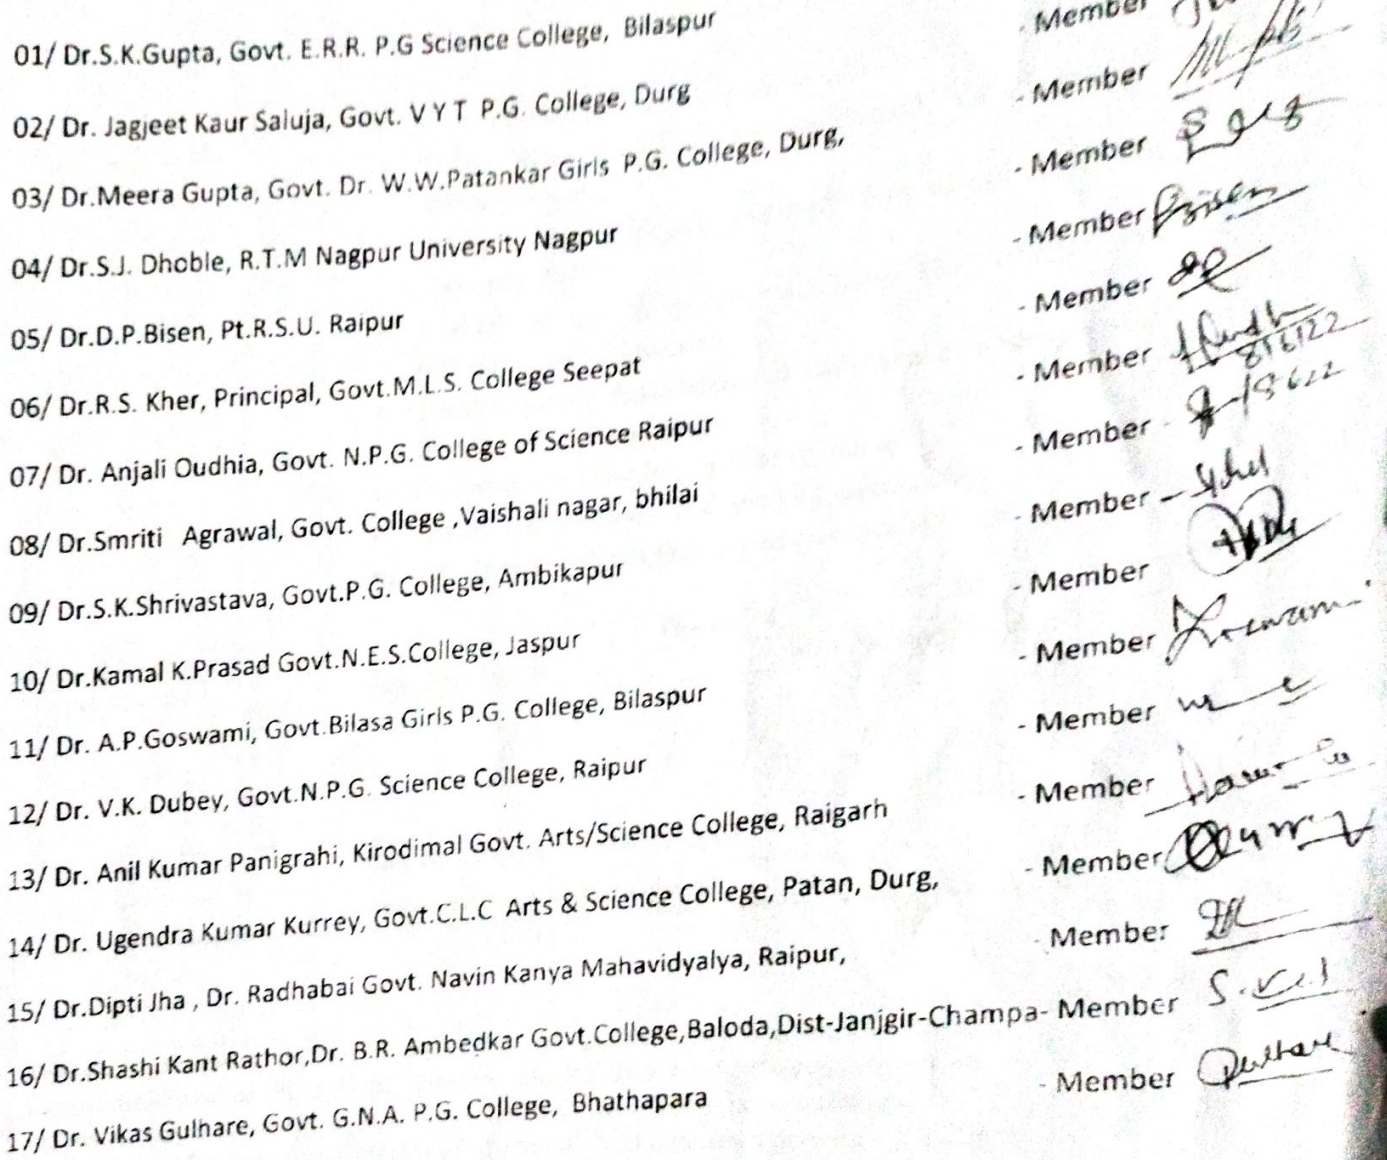 01/ Dr.S.K.Gupta, Govt. E.R.R. P.G Science College, Bilaspur
02/ Dr. Jagjeet Kaur Saluja, Govt. V Y T P.G. College, Durg - Member
03/ Dr.Meera Gupta, Govt. Dr. W.W.Patankar Girls P.G. College, Durg, - Member
04/ Dr.S.J. Dhoble, R.T.M Nagpur University Nagpur - Member
05/ Dr.D.P.Bisen, Pt.R.S.U. Raipur - Member Bisen
06/ Dr.R.S. Kher, Principal, Govt.M.L.S. College Seepat - Member
07/ Dr. Anjali Oudhia, Govt. N.P.G. College of Science Raipur - Member
08/ Dr.Smriti Agrawal, Govt. College ,Vaishali nagar, bhilai - Member
09/ Dr.S.K.Shrivastava, Govt.P.G. College, Ambikapur - Member
10/ Dr.Kamal K.Prasad Govt.N.E.S.College, Jaspur - Member
11/ Dr. A.P.Goswami, Govt.Bilasa Girls P.G. College, Bilaspur - Member
12/ Dr. V.K. Dubey, Govt.N.P.G. Science College, Raipur - Member
13/ Dr. Anil Kumar Panigrahi, Kirodimal Govt. Arts/Science College, Raigarh - Member
14/ Dr. Ugendra Kumar Kurrey, Govt.C.L.C Arts & Science College, Patan, Durg, - Member
15/ Dr.Dipti Jha , Dr. Radhabai Govt. Navin Kanya Mahavidyalya, Raipur, - Member
16/ Dr.Shashi Kant Rathor,Dr. B.R. Ambedkar Govt.College,Baloda,Dist-Janjgir-Champa- Member
17/ Dr. Vikas Gulhare, Govt. G.N.A. P.G. College, Bhathapara - Member